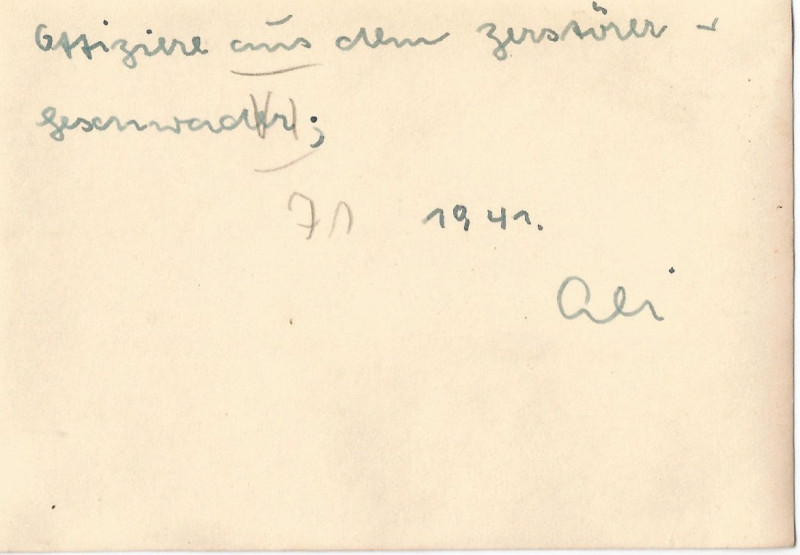 Offiziere aus dem Zerstörer -
geschwader;
71 1941.
Ali